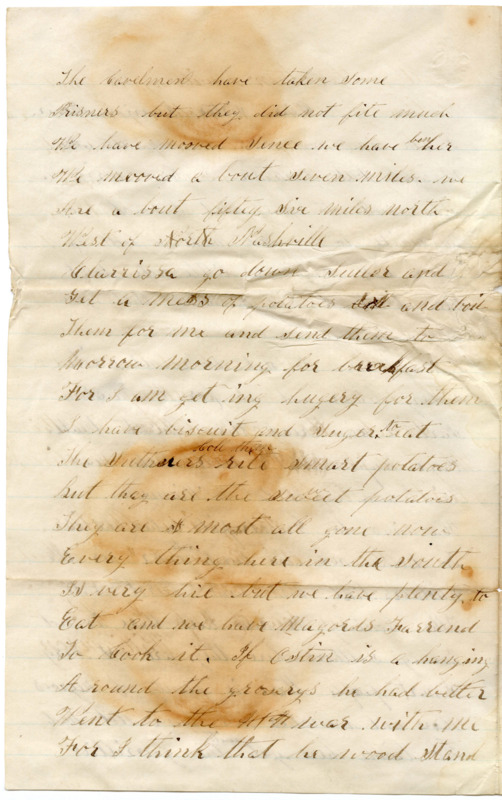 The Cavelmen have taken some
Prisners but they did not fite much
We have mooved sence we have ben her
We mooved a bout seven miles. we
Are a bout fifty Six miles north
West of North Nashville
Clarrissa go down Suller and
Get a mess of potatoes and boil
Them for me and send them to
Morrow morning for breckfast
For I am get ing hugery for them
I have biscuit and Suger to eat
The Suthners rite smart potatoes
but they are the sweet potatois
They are most all gone now
Every thing here in the South
Is very hie but we have plenty to
Eat and we have Magords Farrend
To Cook it. If Ostin is a hanging
A round the grocerys he had better
Went to the war with me
For I think that he wood stand